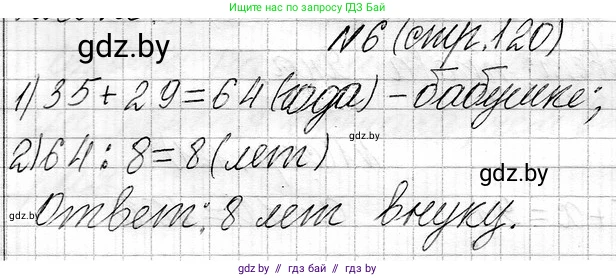 Присоединяйся к нам в vk.com/gdz_by
gdz.by
№6 (стр. 120)
1) 35 + 29 = 64 (года) – бабушке;
gdz.by
2) 64 : 8 = 8 (лет)
gdz.by
gdz.by
Ответ: 8 лет внуку.
gdz.by // гдз.бай // gdz.by